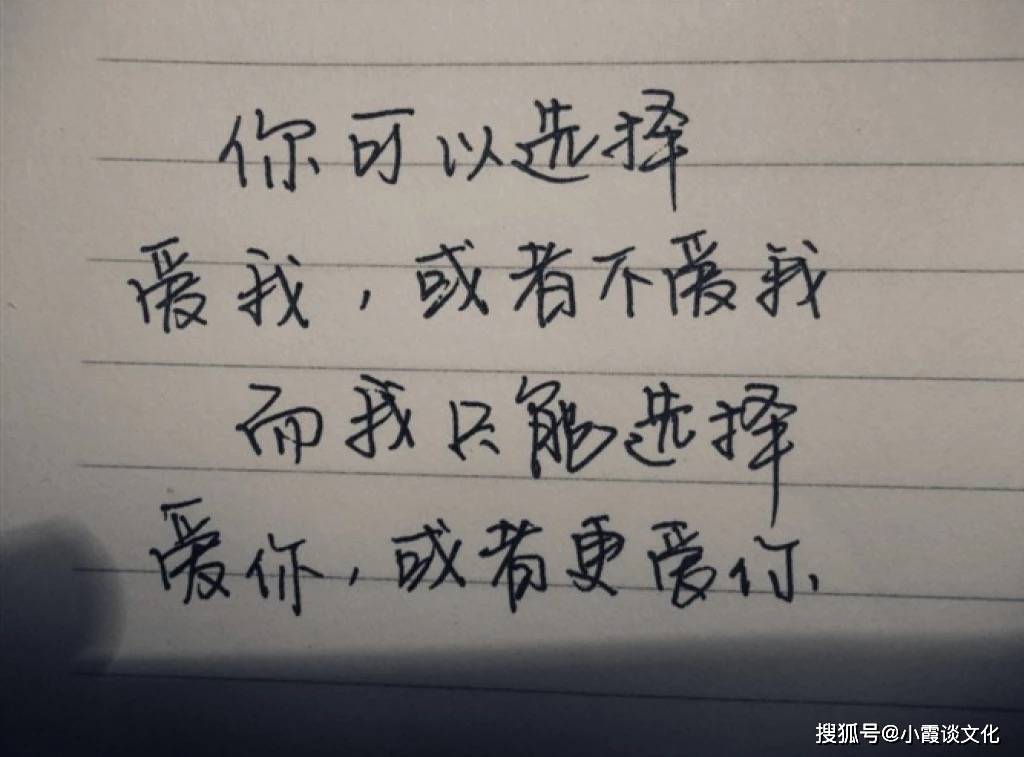 你可以选择
爱我，或者不爱我
而我只能选择
爱你，或者更爱你.
搜狐号@小霞谈文化